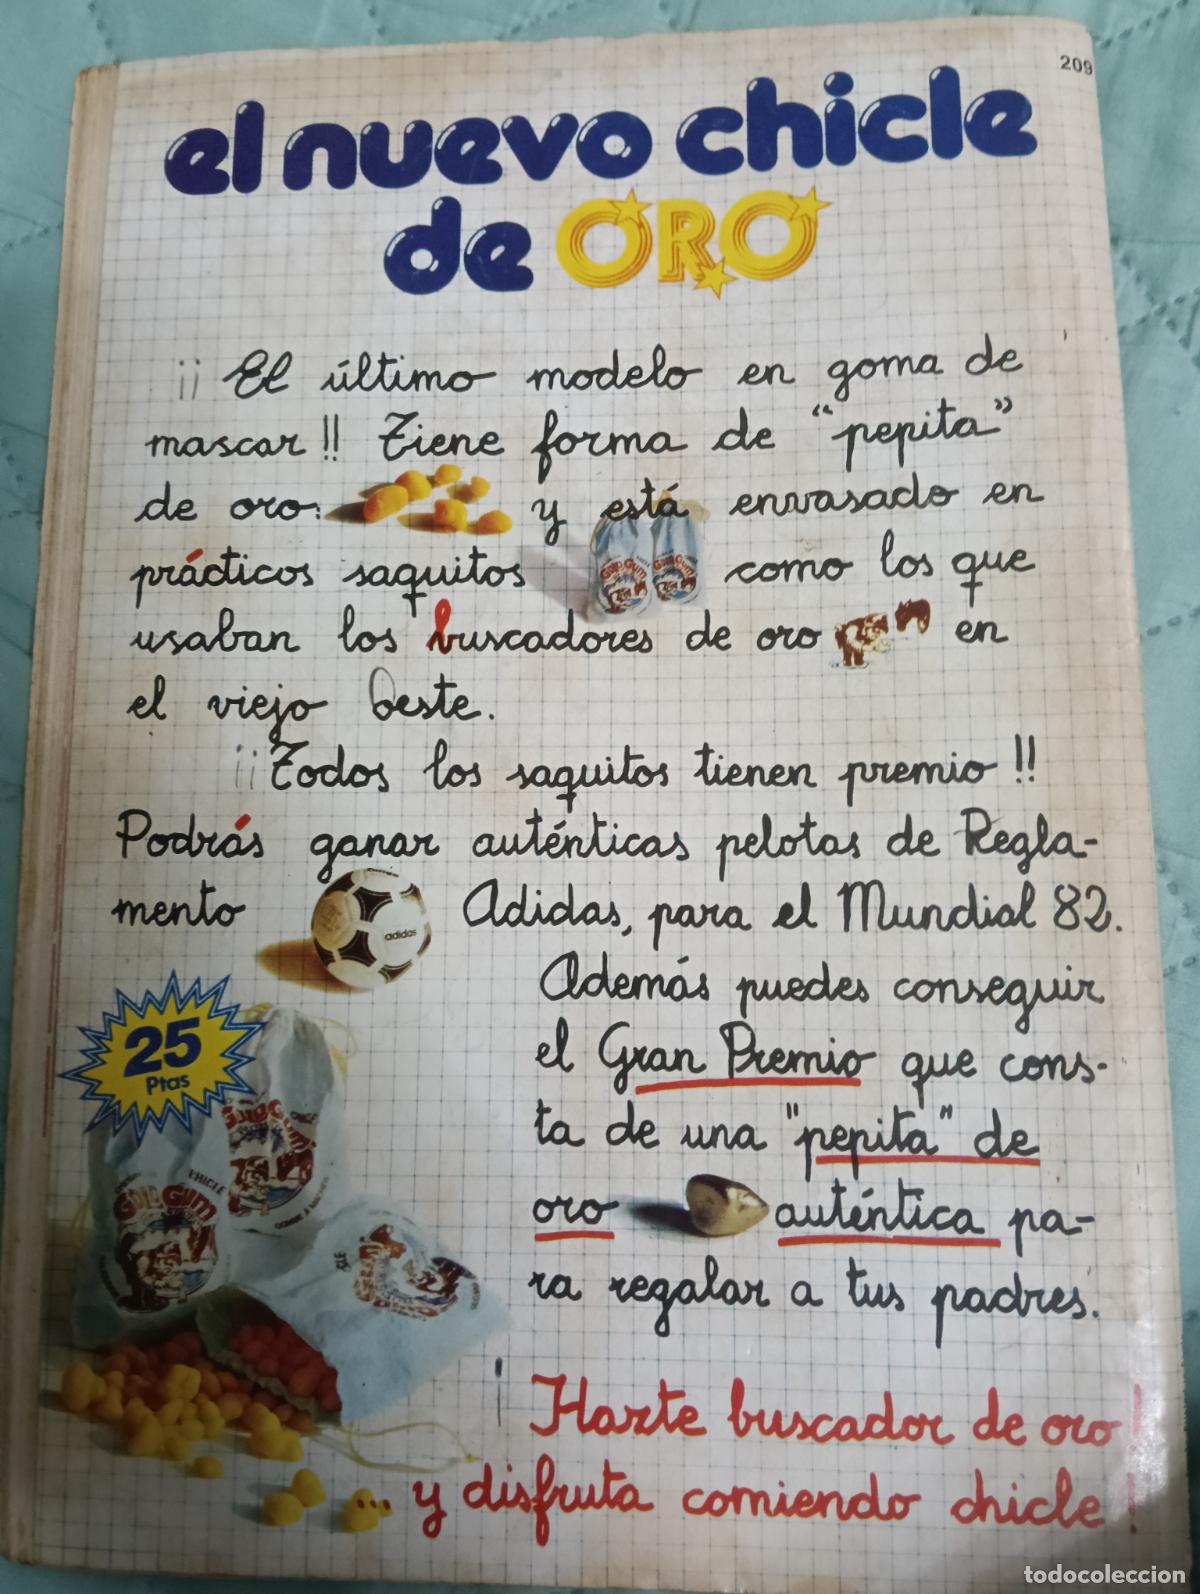 209
el nuevo chicle
de ORO
¡¡ El último modelo en goma de
mascar!! Tiene forma de "pepita"
de oro: y está envasado en
prácticos saquitos como los que
usaban los buscadores de oro en
el viejo Oeste.
¡¡Todos los saquitos tienen premio!!
Podrás ganar auténticas pelotas de Regla-
mento Adidas, para el Mundial 82.
adidas
Además puedes conseguir
el Gran Premio que cons-
ta de una "pepita" de
oro auténtica pa-
ra regalar a tus padres.
25
Ptas
Gold Gum
CHICLE
Gold Gum
¡Hazte buscador de oro!
... y disfruta comiendo chicle!
todocoleccion